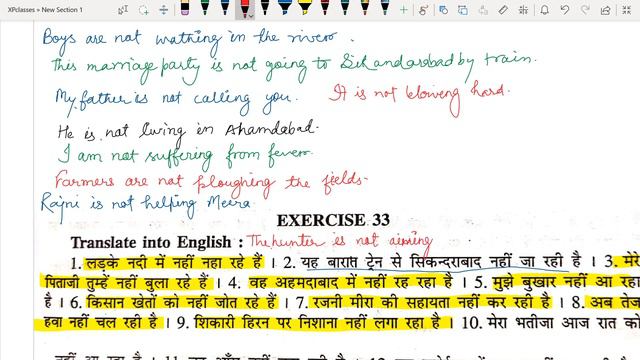 XPclasses » New Section 1
Boys are not wathing in the river.
This marriage party is not going to Sikandarabad by train.
My father is not calling you. It is not bloweng hard.
He is not living in Ahamdabad.
I am not suffering from fever.
Farmers are not ploughing the fields.
Rajni is not helping Meera
EXERCISE 33
Translate into English : The hunter is not aiming
1. लड़के नदी में नहीं नहा रहे हैं । 2. यह बारात ट्रेन से सिकन्दराबाद नहीं जा रही है । 3. मेरे
पिताजी तुम्हें नहीं बुला रहे हैं । 4. वह अहमदाबाद में नहीं रह रहा है । 5. मुझे बुखार नहीं आ रहा
है । 6. किसान खेतों को नहीं जोत रहे हैं । 7. रजनी मीरा की सहायता नहीं कर रही है । 8. अब तेज
हवा नहीं चल रही है । 9. शिकारी हिरन पर निशाना नहीं लगा रहा है । 10. मेरा भतीजा आज रात को